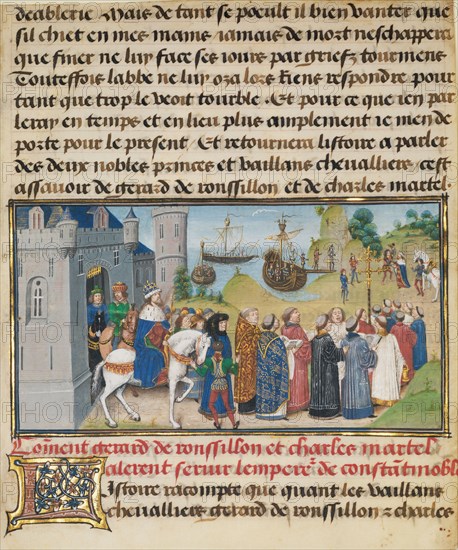 deablerie. Mais de tant se poeult il bien vanter que
sil chiet en mes mains iamais de mort neschappera
que finer ne luy face ses iours par griefz tourmens
Touteffois labbe ne luy oza lors riens respondre pour
tant que trop le veoit tourble. Et pour ce que ien par
leray en temps et en lieu plus amplement ie men de
porte pour le present. Et retournera listoire a parler
des deux nobles princes et vaillans chevalliers cest
assavoir de gerard de roussillon et de charles martel.
Coment gerard de roussillon et charles martel
alerent servir lempereʳ de constātinoble
Listoire racompte que quant les vaillans
chevalliers gerard de roussillon & charles